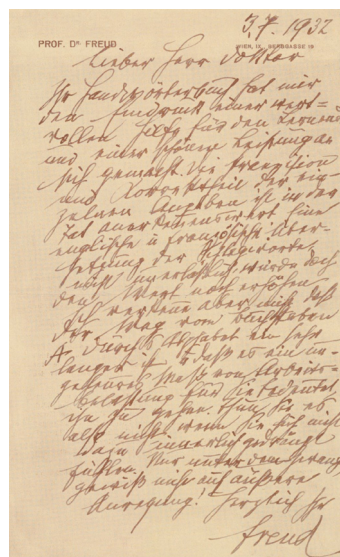 3.7.1932
PROF. Dr. FREUD WIEN, IX., BERGGASSE 19
Lieber Herr Doktor
Ihr Handwörterbuch hat mir
den Eindruck einer wert=
vollen Hilfe für den Lernenden
und einer schönen Leistung an
sich gemacht. Die Praezision
und Korrektheit der ein=
zelnen Angaben ist in der
Tat anerkennenswert. Eine
englische u französische Über=
setzung der Schlagworte,
nicht unerlässlich, würde doch
den Wert noch erhöhen.
Ich verkenne aber nicht, daß
der Weg vom Buchstaben
A durchs Alphabet ein sehr
langer ist u daß es ein un=
geheures Maß von Arbeits=
belastung für Sie bedeutet
ihn zu gehen. Thun Sie es
also nicht wenn Sie sich nicht
dazu innerlich gedrängt
fühlen. Nur unter dem Zwang
gewiß nicht auf äußere
Anregung! Herzlich Ihr
Freud